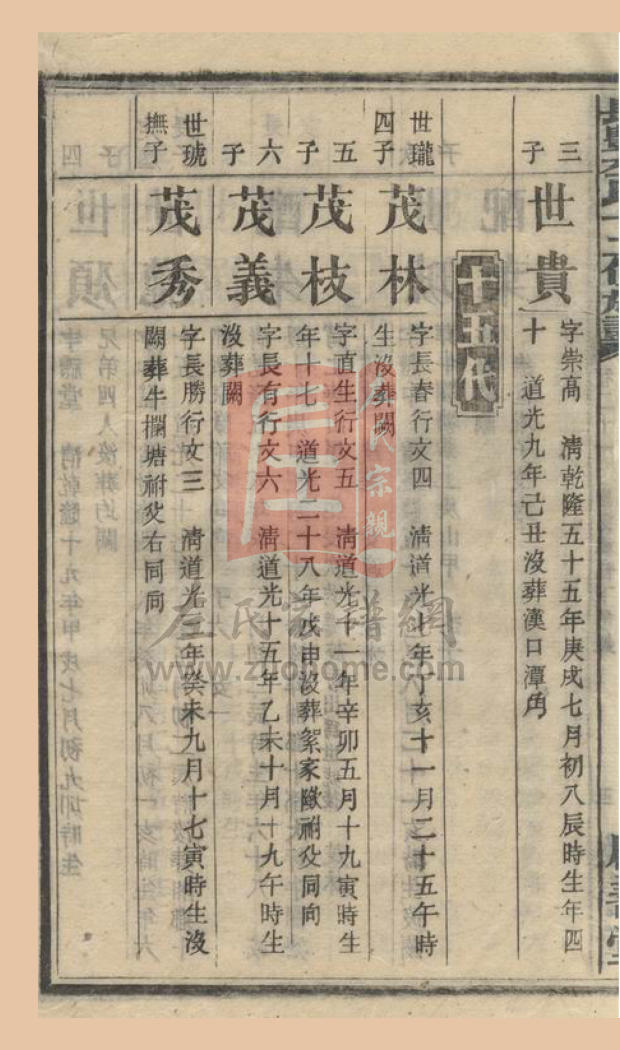 三子
世貴
字崇高 清乾隆五十五年庚戌七月初八辰時生年四
十 道光九年己丑沒葬漢口潭角
十五代
世瓏四子
茂林
字長春行文四 清道光七年丁亥十一月二十五午時
生沒葬闕
五子
茂枝
字直生行文五 清道光十一年辛卯五月十九寅時生
年十七 道光二十八年戊申沒葬絮家墩祔父同向
六子
茂義
字長有行文六 清道光十五年乙未十月十九午時生
沒葬闕
世琥撫子
茂秀
字長勝行文三 清道光三年癸未九月十七寅時生沒
闕葬牛欄塘祔父右同向
左氏宗親
左氏家譜網
www.zuohome.com